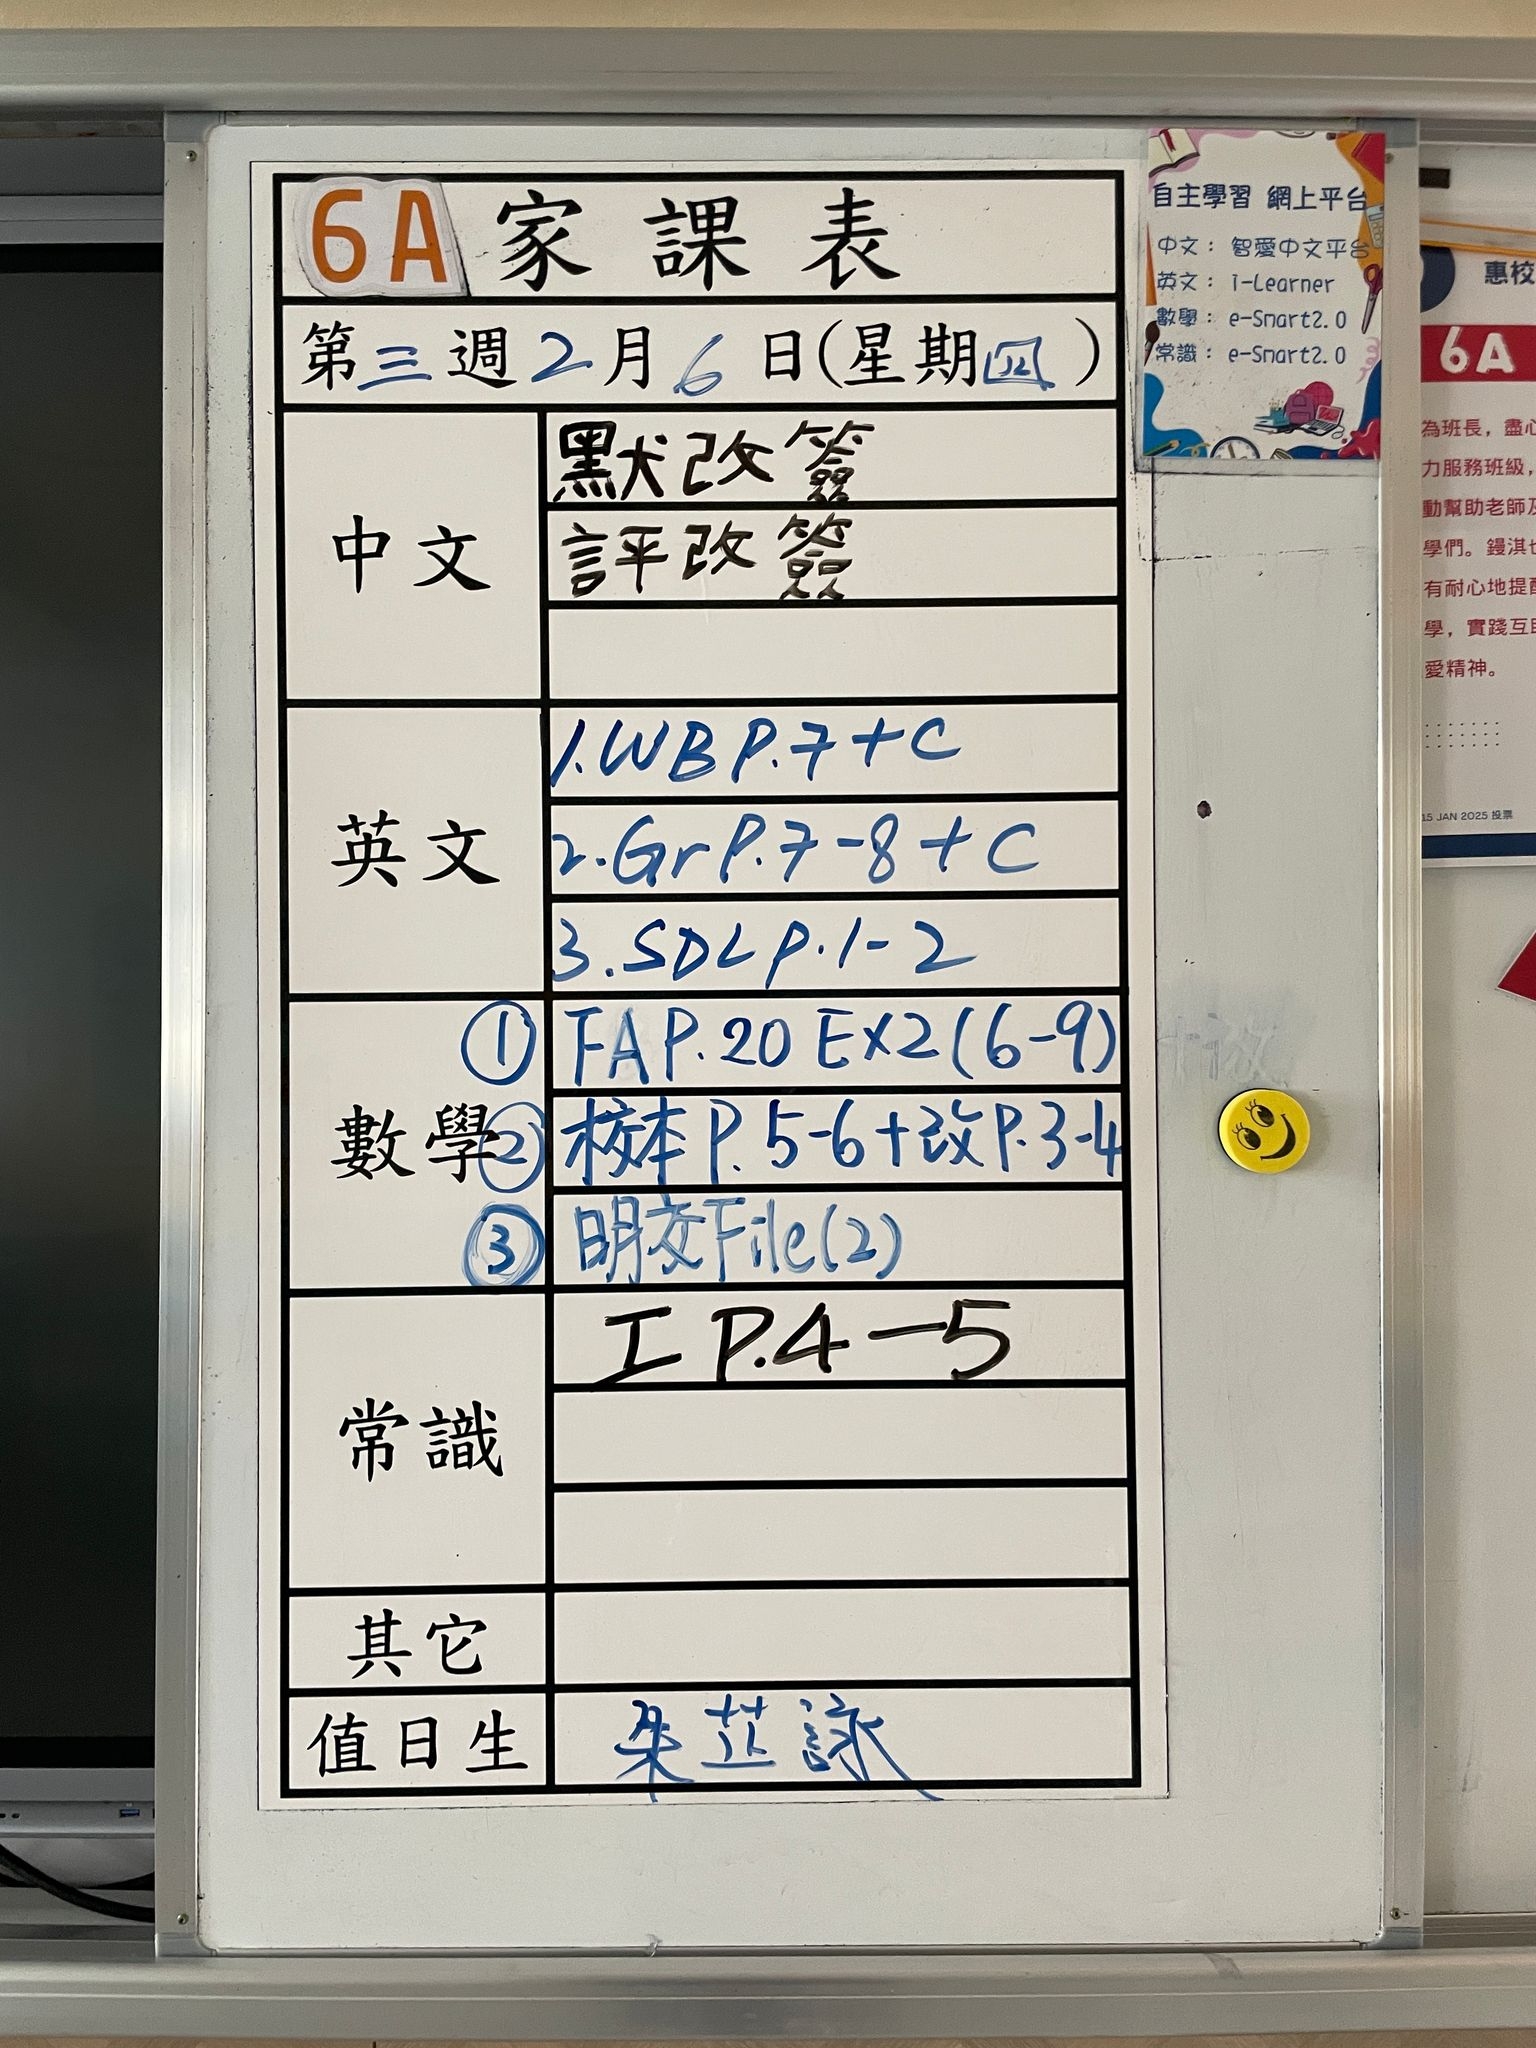 6A 家課表
第三週2月6日(星期四)
中文
默改簽
評改簽
英文
1.WB P.7+C
2.Gr P.7-8+C
3.SDL P.1-2
數學
① FA P.20 Ex2(6-9)
② 校本 P.5-6+改P.3-4
③ 明交File(2)
常識
工 P.4-5
其它
值日生
朱芷詠
自主學習 網上平台
中文： 智愛中文平台
英文： i-Learner
數學： e-Smart2.0
常識： e-Smart2.0
惠校
6A
為班長，盡心
力服務班級，
動幫助老師及
學們。鏝淇也
有耐心地提醒
學，實踐互助
愛精神。
15 JAN 2025 投票